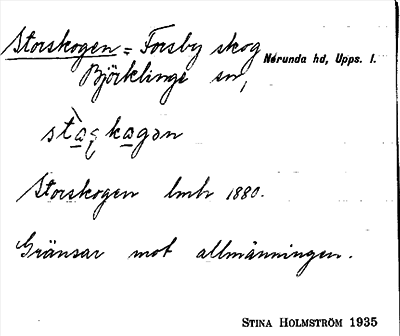 Storskogen = Forsby skog
Norunda hd, Upps. l.
Björklinge sn,
Storskogen lmh 1880.
Gränsar mot allmänningen.
STINA HOLMSTRÖM 1935